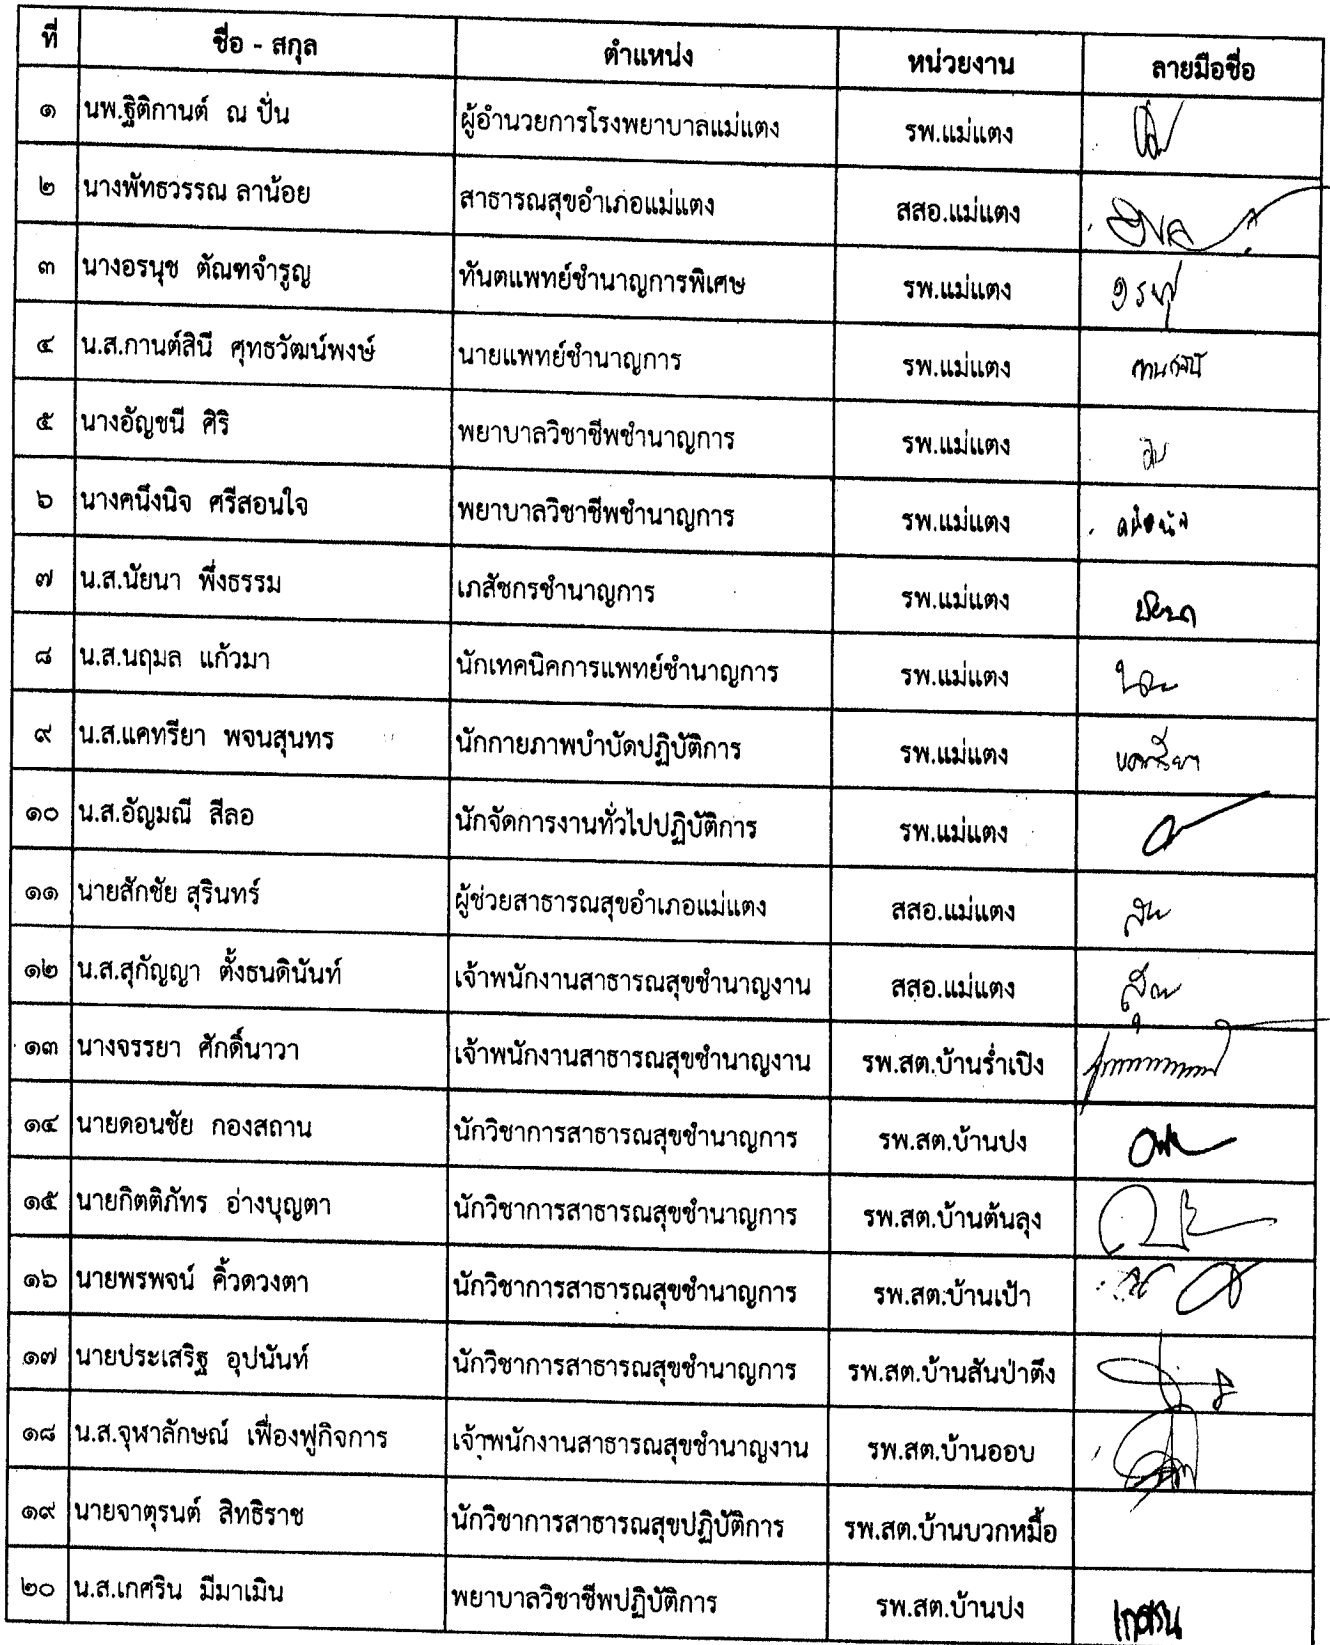 ที่ ชื่อ - สกุล ตำแหน่ง หน่วยงาน ลายมือชื่อ
๑ นพ.ฐิติกานต์ ณ ปั่น ผู้อำนวยการโรงพยาบาลแม่แตง รพ.แม่แตง
๒ นางพัทธวรรณ ลาน้อย สาธารณสุขอำเภอแม่แตง สสอ.แม่แตง
๓ นางอรนุช ตัณฑจำรูญ ทันตแพทย์ชำนาญการพิเศษ รพ.แม่แตง อรนุช
๔ น.ส.กานต์สินี ศุทธวัฒน์พงษ์ นายแพทย์ชำนาญการ รพ.แม่แตง
๕ นางอัญชนี ศิริ พยาบาลวิชาชีพชำนาญการ รพ.แม่แตง
๖ นางคนึงนิจ ศรีสอนใจ พยาบาลวิชาชีพชำนาญการ รพ.แม่แตง
๗ น.ส.นัยนา พึ่งธรรม เภสัชกรชำนาญการ รพ.แม่แตง นัยนา
๘ น.ส.นฤมล แก้วมา นักเทคนิคการแพทย์ชำนาญการ รพ.แม่แตง
๙ น.ส.แคทรียา พจนสุนทร นักกายภาพบำบัดปฏิบัติการ รพ.แม่แตง แคทรียา
๑๐ น.ส.อัญมณี สีลอ นักจัดการงานทั่วไปปฏิบัติการ รพ.แม่แตง
๑๑ นายสักชัย สุรินทร์ ผู้ช่วยสาธารณสุขอำเภอแม่แตง สสอ.แม่แตง
๑๒ น.ส.สุกัญญา ตั้งธนดินันท์ เจ้าพนักงานสาธารณสุขชำนาญงาน สสอ.แม่แตง
๑๓ นางจรรยา ศักดิ์นาวา เจ้าพนักงานสาธารณสุขชำนาญงาน รพ.สต.บ้านร่ำเปิง
๑๔ นายดอนชัย กองสถาน นักวิชาการสาธารณสุขชำนาญการ รพ.สต.บ้านปง
๑๕ นายกิตติภัทร อ่างบุญตา นักวิชาการสาธารณสุขชำนาญการ รพ.สต.บ้านต้นลุง
๑๖ นายพรพจน์ คิ้วดวงตา นักวิชาการสาธารณสุขชำนาญการ รพ.สต.บ้านเป้า
๑๗ นายประเสริฐ อุปนันท์ นักวิชาการสาธารณสุขชำนาญการ รพ.สต.บ้านสันป่าตึง
๑๘ น.ส.จุฬาลักษณ์ เฟื่องฟูกิจการ เจ้าพนักงานสาธารณสุขชำนาญงาน รพ.สต.บ้านออบ
๑๙ นายจาตุรนต์ สิทธิราช นักวิชาการสาธารณสุขปฏิบัติการ รพ.สต.บ้านบวกหมื้อ
๒๐ น.ส.เกศริน มีมาเมิน พยาบาลวิชาชีพปฏิบัติการ รพ.สต.บ้านปง เกศริน